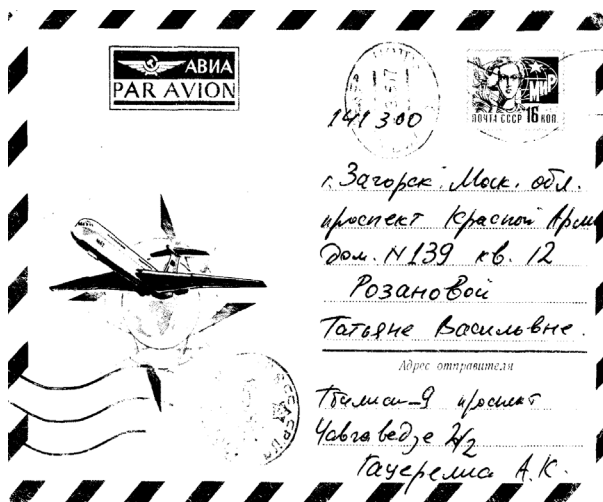 АВИА
PAR AVION
МИР
ПОЧТА СССР 16 КОП.
141300
г. Загорск. Моск. обл.
проспект Красной Арми
Дом. N 139 кв. 12
Розановой
Татьяне Васильевне.
Адрес отправителя
Тбилиси-9 проспект
2/2
А.К.